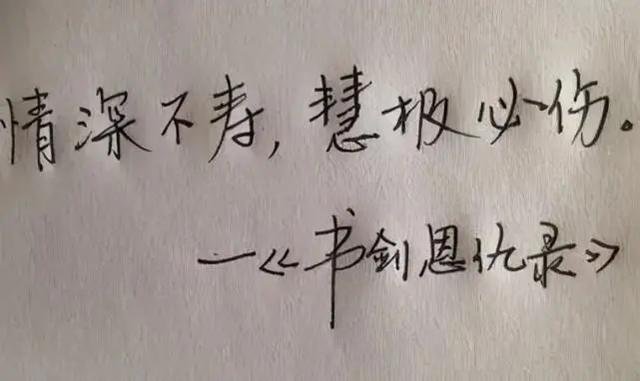 情深不寿,慧极必伤。
—《书剑恩仇录》